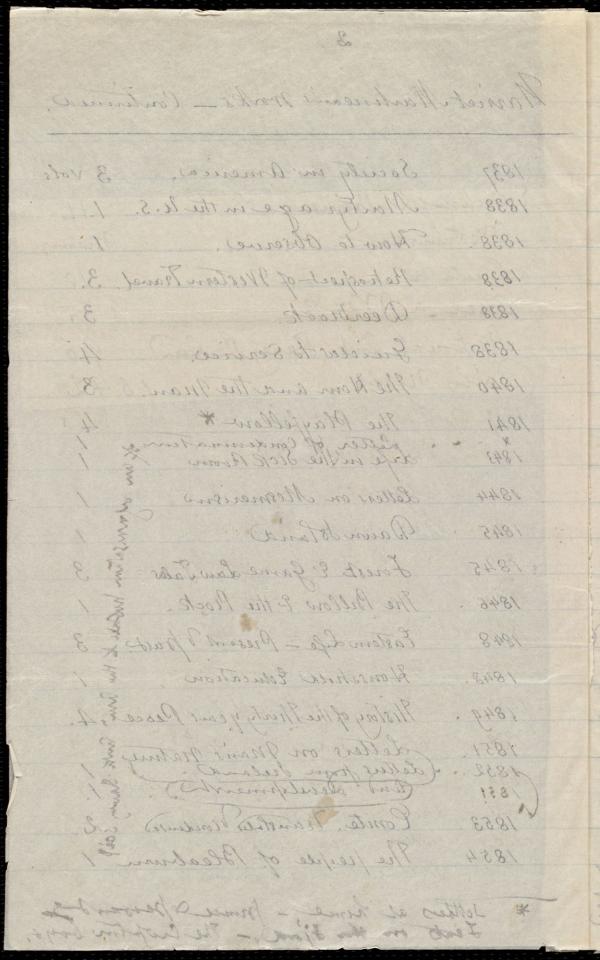 2
Harriet Martineau's Works — Continued.
1837 Society in America. 3 vols
1838 Martyr age in the U.S. 1.
1838. How to Observe. 1
1838 Retrospect of Western Travel. 3.
1838 Deerbrook. 3
1838 Guides to Service. 4
1840 The Hour and the Man. 3
1841 The Playfellow * 4
* Letter of 1
1843 Life in the Sick Room 1
1844 Letters on Mesmerism 1
1845 Dawn Island 1
1845 Forest & Game Law Tales 3
1846 The Billow & the Rock. 1
1848 Eastern Life — Present & Past 3
1848. Household Education 1
1849. History of the Thirty years Peace, 4.
1851. Letters on Man's Nature
and development 1.
1852 Letters from Ireland 1
1851
1853 Comte. 2
1854 The people of Bleaburn 1
* Settlers at home — Prince & Peasant
Feats on the Fjord — The Crofton boys.